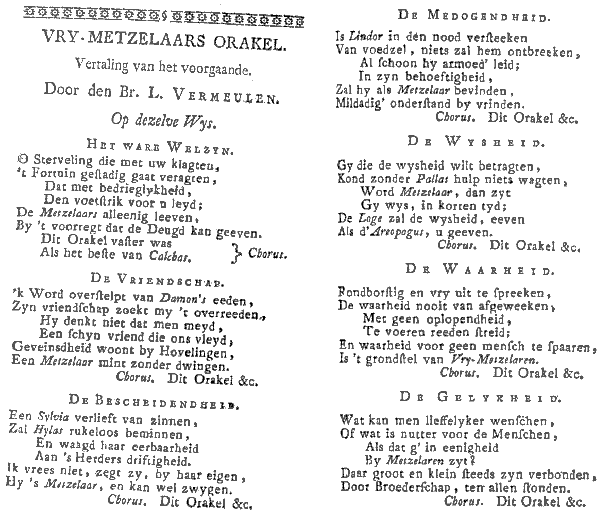 VRY-METZELAARS ORAKEL.
Vertaling van het voorgaande.
Door den Br. L. VERMEULEN.
Op dezelve Wys.
HET WARE WELZYN.
O Sterveling die met uw klagten,
't Fortuin gestadig gaat veragten,
Dat met bedrieglykheid,
Den voetstrik voor u leyd;
De Metzelaars alleenig leeven,
By 't voorregt dat de Deugd kan geeven.
Dit Orakel vaster was
Als het beste van Calchas.
} Chorus.
DE VRIENDSCHAP.
'k Word overstelpt van Damon's eeden,
Zyn vriendschap zoekt my 't overreeden,
Hy denkt niet dat men meyd,
Een schyn vriend die ons vleyd;
Geveinsdheid woont by Hovelingen,
Een Metzelaar mint zonder dwingen.
Chorus. Dit Orakel &c.
DE BESCHEIDENDHEID.
Een Sylvia verlieft van zinnen,
Zal Hylas rukeloos beminnen,
En waagd haar eerbaarheid
Aan 's Herders driftigheid.
Ik vrees niet, zegt zy, by haar eigen,
Hy 's Metzelaar, en kan wel zwygen.
Chorus. Dit Orakel &c.
DE MEDOGENDHEID.
Is Lindor in den nood versteeken
Van voedzel, niets zal hem ontbreeken,
Al schoon hy armoed' leid;
In zyn behoeftigheid,
Zal hy als Metzelaar bevinden,
Mildadig' onderstand by vrinden.
Chorus. Dit Orakel &c.
DE WYSHEID.
Gy die de wysheid wilt betragten,
Kond zonder Pallas hulp niets wagten,
Word Metzelaar, dan zyt
Gy wys, in korten tyd;
De Loge zal de wysheid, eeven
Als d'Areopogus, u geeven.
Chorus. Dit Orakel &c.
DE WAARHEID.
Rondborstig en vry uit te spreeken,
De waarheid nooit van afgeweeken,
Met geen oplopendheid,
Te voeren reeden streid;
En waarheid voor geen mensch te spaaren,
Is 't grondstel van Vry-Metzelaren.
Chorus. Dit Orakel &c.
DE GELYKHEID.
Wat kan men lieffelyker wenschen,
Of wat is nutter voor de Menschen,
Als dat g' in eenigheid
By Metzelaren zyt?
Daar groot en klein steeds zyn verbonden,
Door Broederschap, ten allen stonden.
Chorus. Dit Orakel &c.